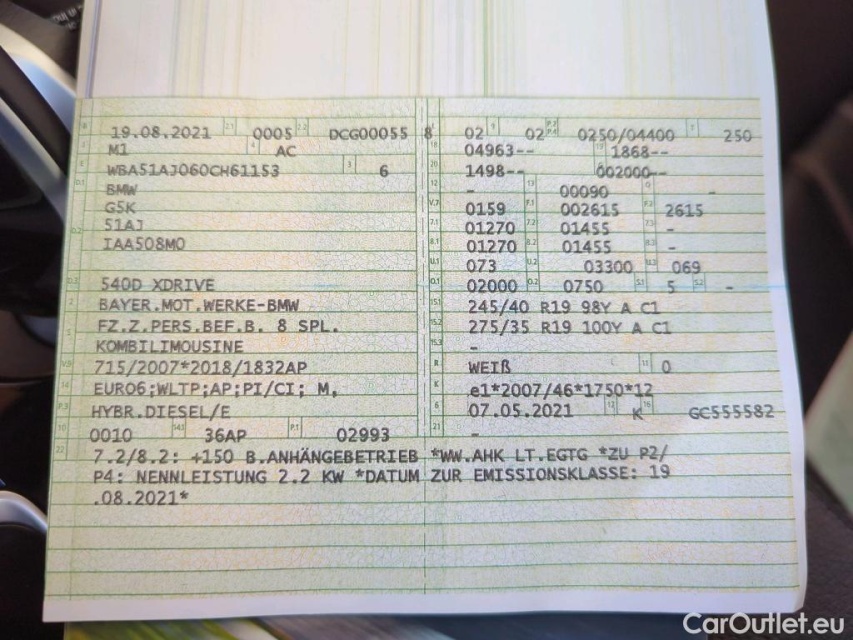 19.08.2021 0005 DCG00055 8
M1 AC
WBA51AJ060CH61153 6
BMW
G5K
51AJ
IAA508M0
540D XDRIVE
BAYER.MOT.WERKE-BMW
FZ.Z.PERS.BEF.B. 8 SPL.
KOMBILIMOUSINE
715/2007*2018/1832AP
EURO6;WLTP;AP;PI/CI; M,
HYBR.DIESEL/E
0010 36AP 02993
02 02 0250/04400 250
04963-- 1868--
1498-- 002000--
- 00090 -
0159 002615 2615
01270 01455 -
01270 01455 -
073 03300 069
02000 0750 5 -
245/40 R19 98Y A C1
275/35 R19 100Y A C1
-
WEIß 0
e1*2007/46*1750*12
07.05.2021 K GC555582
-
7.2/8.2: +150 B.ANHÄNGEBETRIEB *WW.AHK LT.EGTG *ZU P2/
P4: NENNLEISTUNG 2.2 KW *DATUM ZUR EMISSIONSKLASSE: 19
.08.2021*
CarOutlet.eu